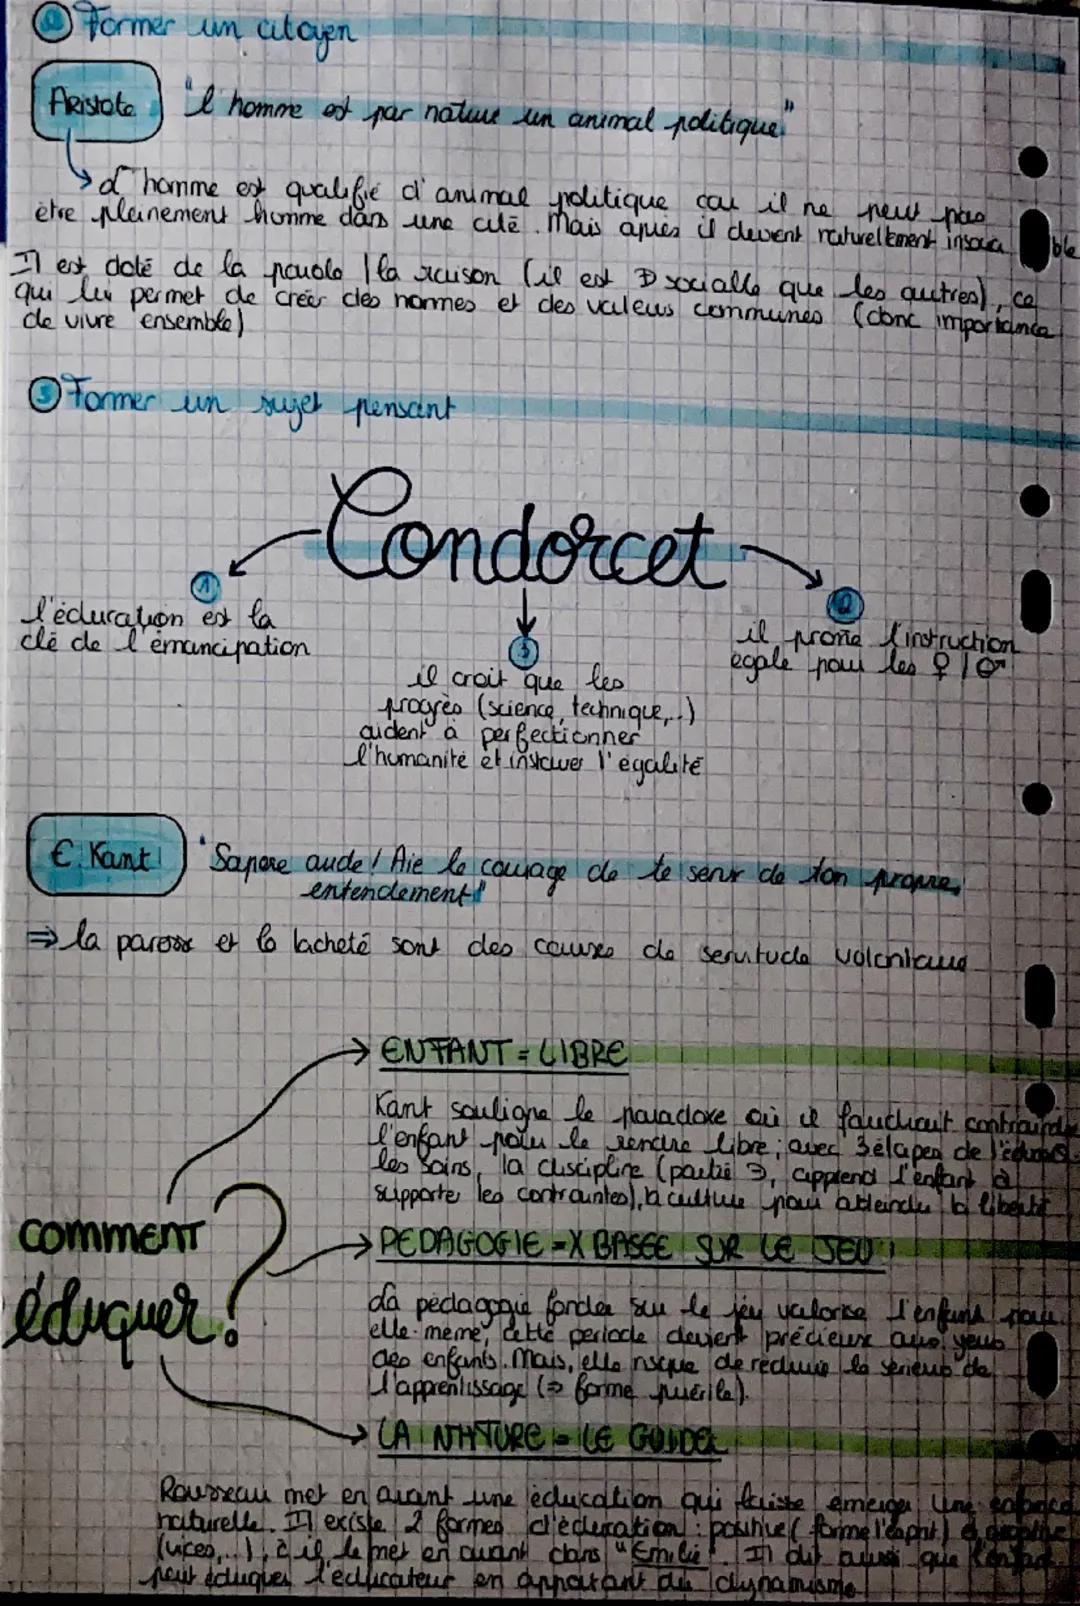 ② Former un citoyen
Aristote "l'homme est par nature un animal politique"
→ L'homme est qualifié d'animal politique car il ne peut pas
être pleinement homme dans une cité. Mais après il devient naturellement insocia ble
Il est doté de la parole / la raison (il est + socialle que les autres), ce
qui lui permet de créer des normes et des valeurs communes (donc importance
de vivre ensemble)
③ Former un sujet pensant
Condorcet
①
l'éducation est la
clé de l'émancipation
②
il prone l'instruction
égale pour les ♀ / ♂
③
il croit que les
progrès (science, technique,..)
aident à perfectionner
l'humanité et instaurer l'égalité
E. Kant "Sapere aude! Aie le courage de te servir de ton propre
entendement"
⇒ la paresse et la lacheté sont des causes de servitude volontaire
comment
éduquer?
→ ENFANT = LIBRE
Kant souligne le paradoxe où il faudrait contraindre
l'enfant pour le rendre libre; avec 3 étapes de
les soins, la discipline (partie, apprend l'enfant à
supporter les contraintes), la culture pour atteindre la liberté
→ PEDAGOGIE = X BASEE SUR LE JEU
La pédagogie fondée sur le jeu valorise l'enfant pour
elle-même, cette periode devient précieux aux yeux
des enfants. Mais, elle risque de reduire le serieux de
l'apprentissage (⇒ forme puérile).
→ LA NATURE = LE GUIDE
Rousseau met en avant une éducation qui laisse émerger une enfance
naturelle. Il existe 2 formes d'éducation : positive (forme l'esprit) et
(vices,...), il le met en avant dans "Emilie". Il dit aussi que l'enfant
peut éduquer l'éducateur en apportant du dynamisme